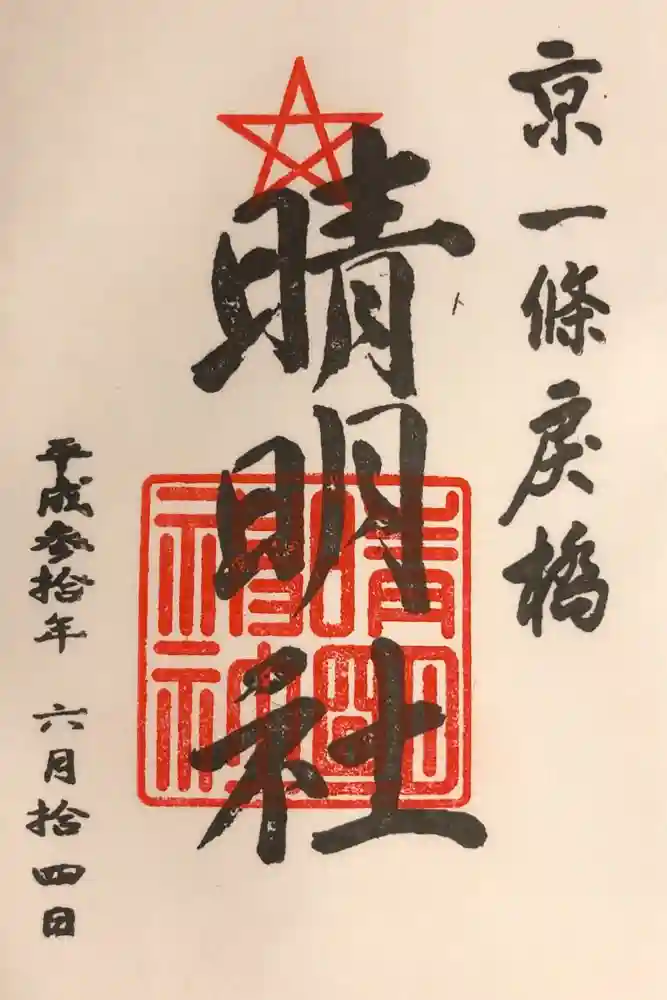 京一條戻橋
晴明社
晴明
神社
平成参拾年 六月拾四日